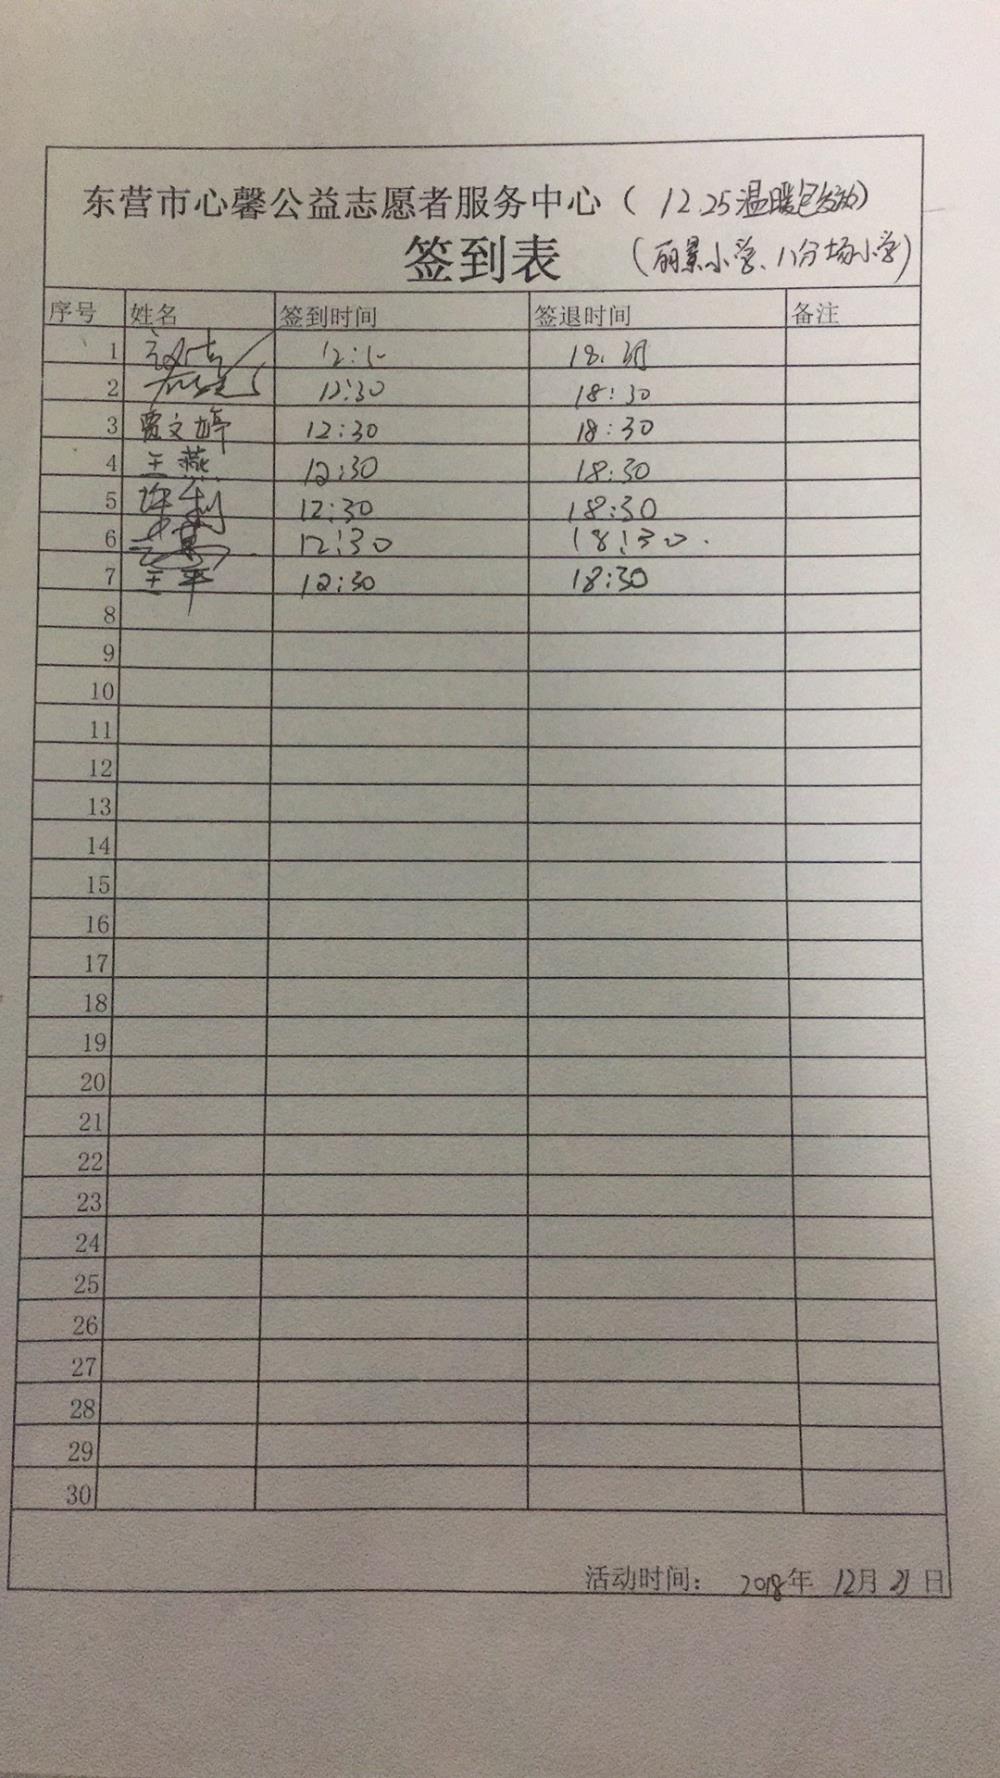 东营市心馨公益志愿者服务中心（12.25温暖包发放）
签到表 （丽景小学、八分场小学）
序号 姓名 签到时间 签退时间 备注
1
2 12:30 18:30
3 贾文婷 12:30 18:30
4 王燕 12:30 18:30
5 许利 12:30 18:30
6 12:30 18:30.
7 王平 12:30 18:30
8
9
10
11
12
13
14
15
16
17
18
19
20
21
22
23
24
25
26
27
28
29
30
活动时间： 2018年 12月 日